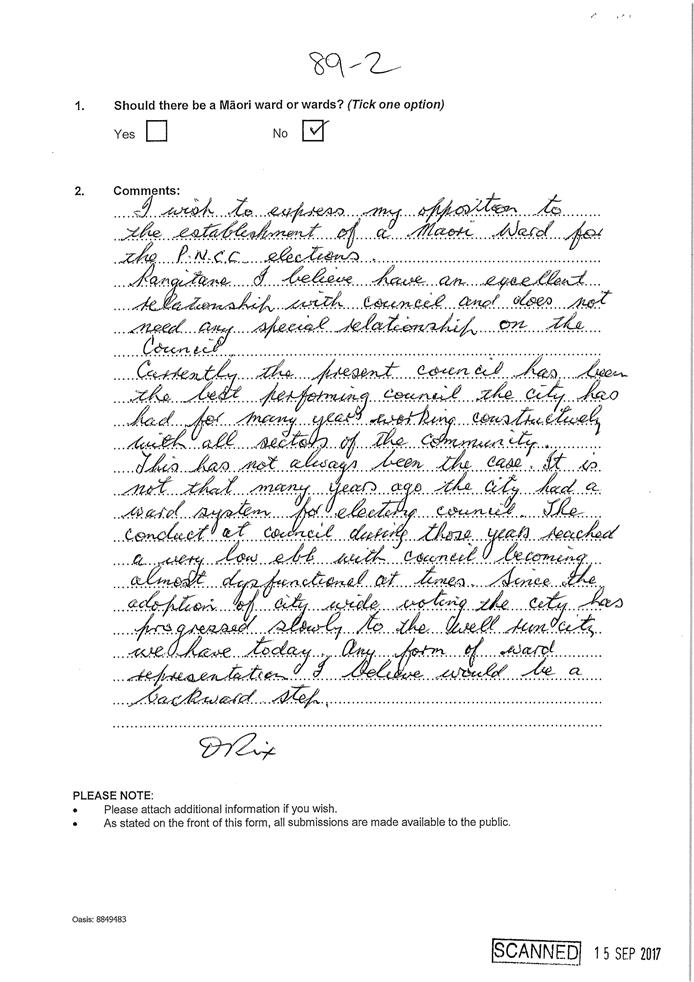 89-2
1. Should there be a Māori ward or wards? (Tick one option)
Yes No
2. Comments:
I wish to express my opposition to
the establishment of a Maori Ward for
the P.N.C.C elections.
Rangitane I believe have an excellent
relationship with council and does not
need any special relationship on the
Council.
Currently the present council has been
the best performing council the city has
had for many years working constructively
with all sectors of the community.
This has not always been the case. It is
not that many years ago the city had a
ward system for electing council. The
conduct at council during those years reached
a very low ebb with council becoming
almost dysfunctional at times. Since the
adoption of city wide voting the city has
progressed slowly to the well run city
we have today. Any form of ward
representation I believe would be a
backward step.
D Rix
PLEASE NOTE:
• Please attach additional information if you wish.
• As stated on the front of this form, all submissions are made available to the public.
Oasis: 8849483
SCANNED 15 SEP 2017